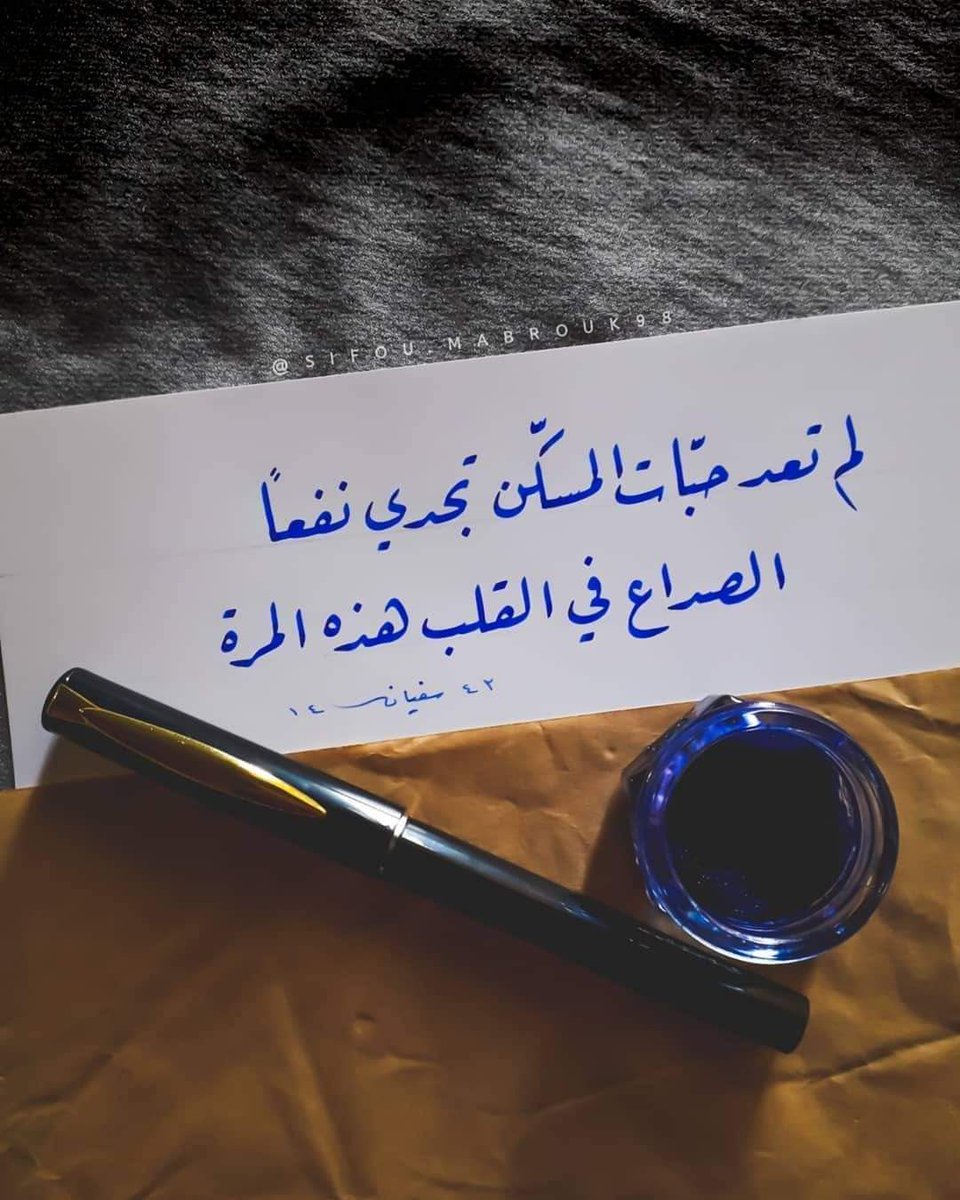 @SIFOU_MABROUK98
لم تعد حبّات المسكّن تجدي نفعاً
الصداع في القلب هذه المرة
٤٢ سفيان ١٤